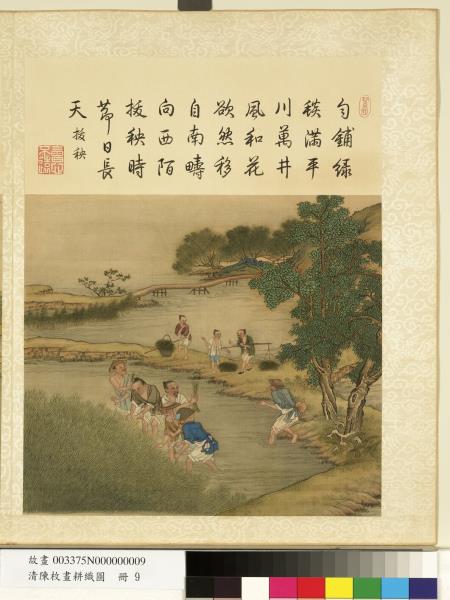 勻鋪綠
毯滿平
川萬井
風和花
欲然移
自南疇
向西陌
拔秧時
節日長
天 拔秧
故畫 003375N000000009
清陳枚畫耕織圖 冊 9